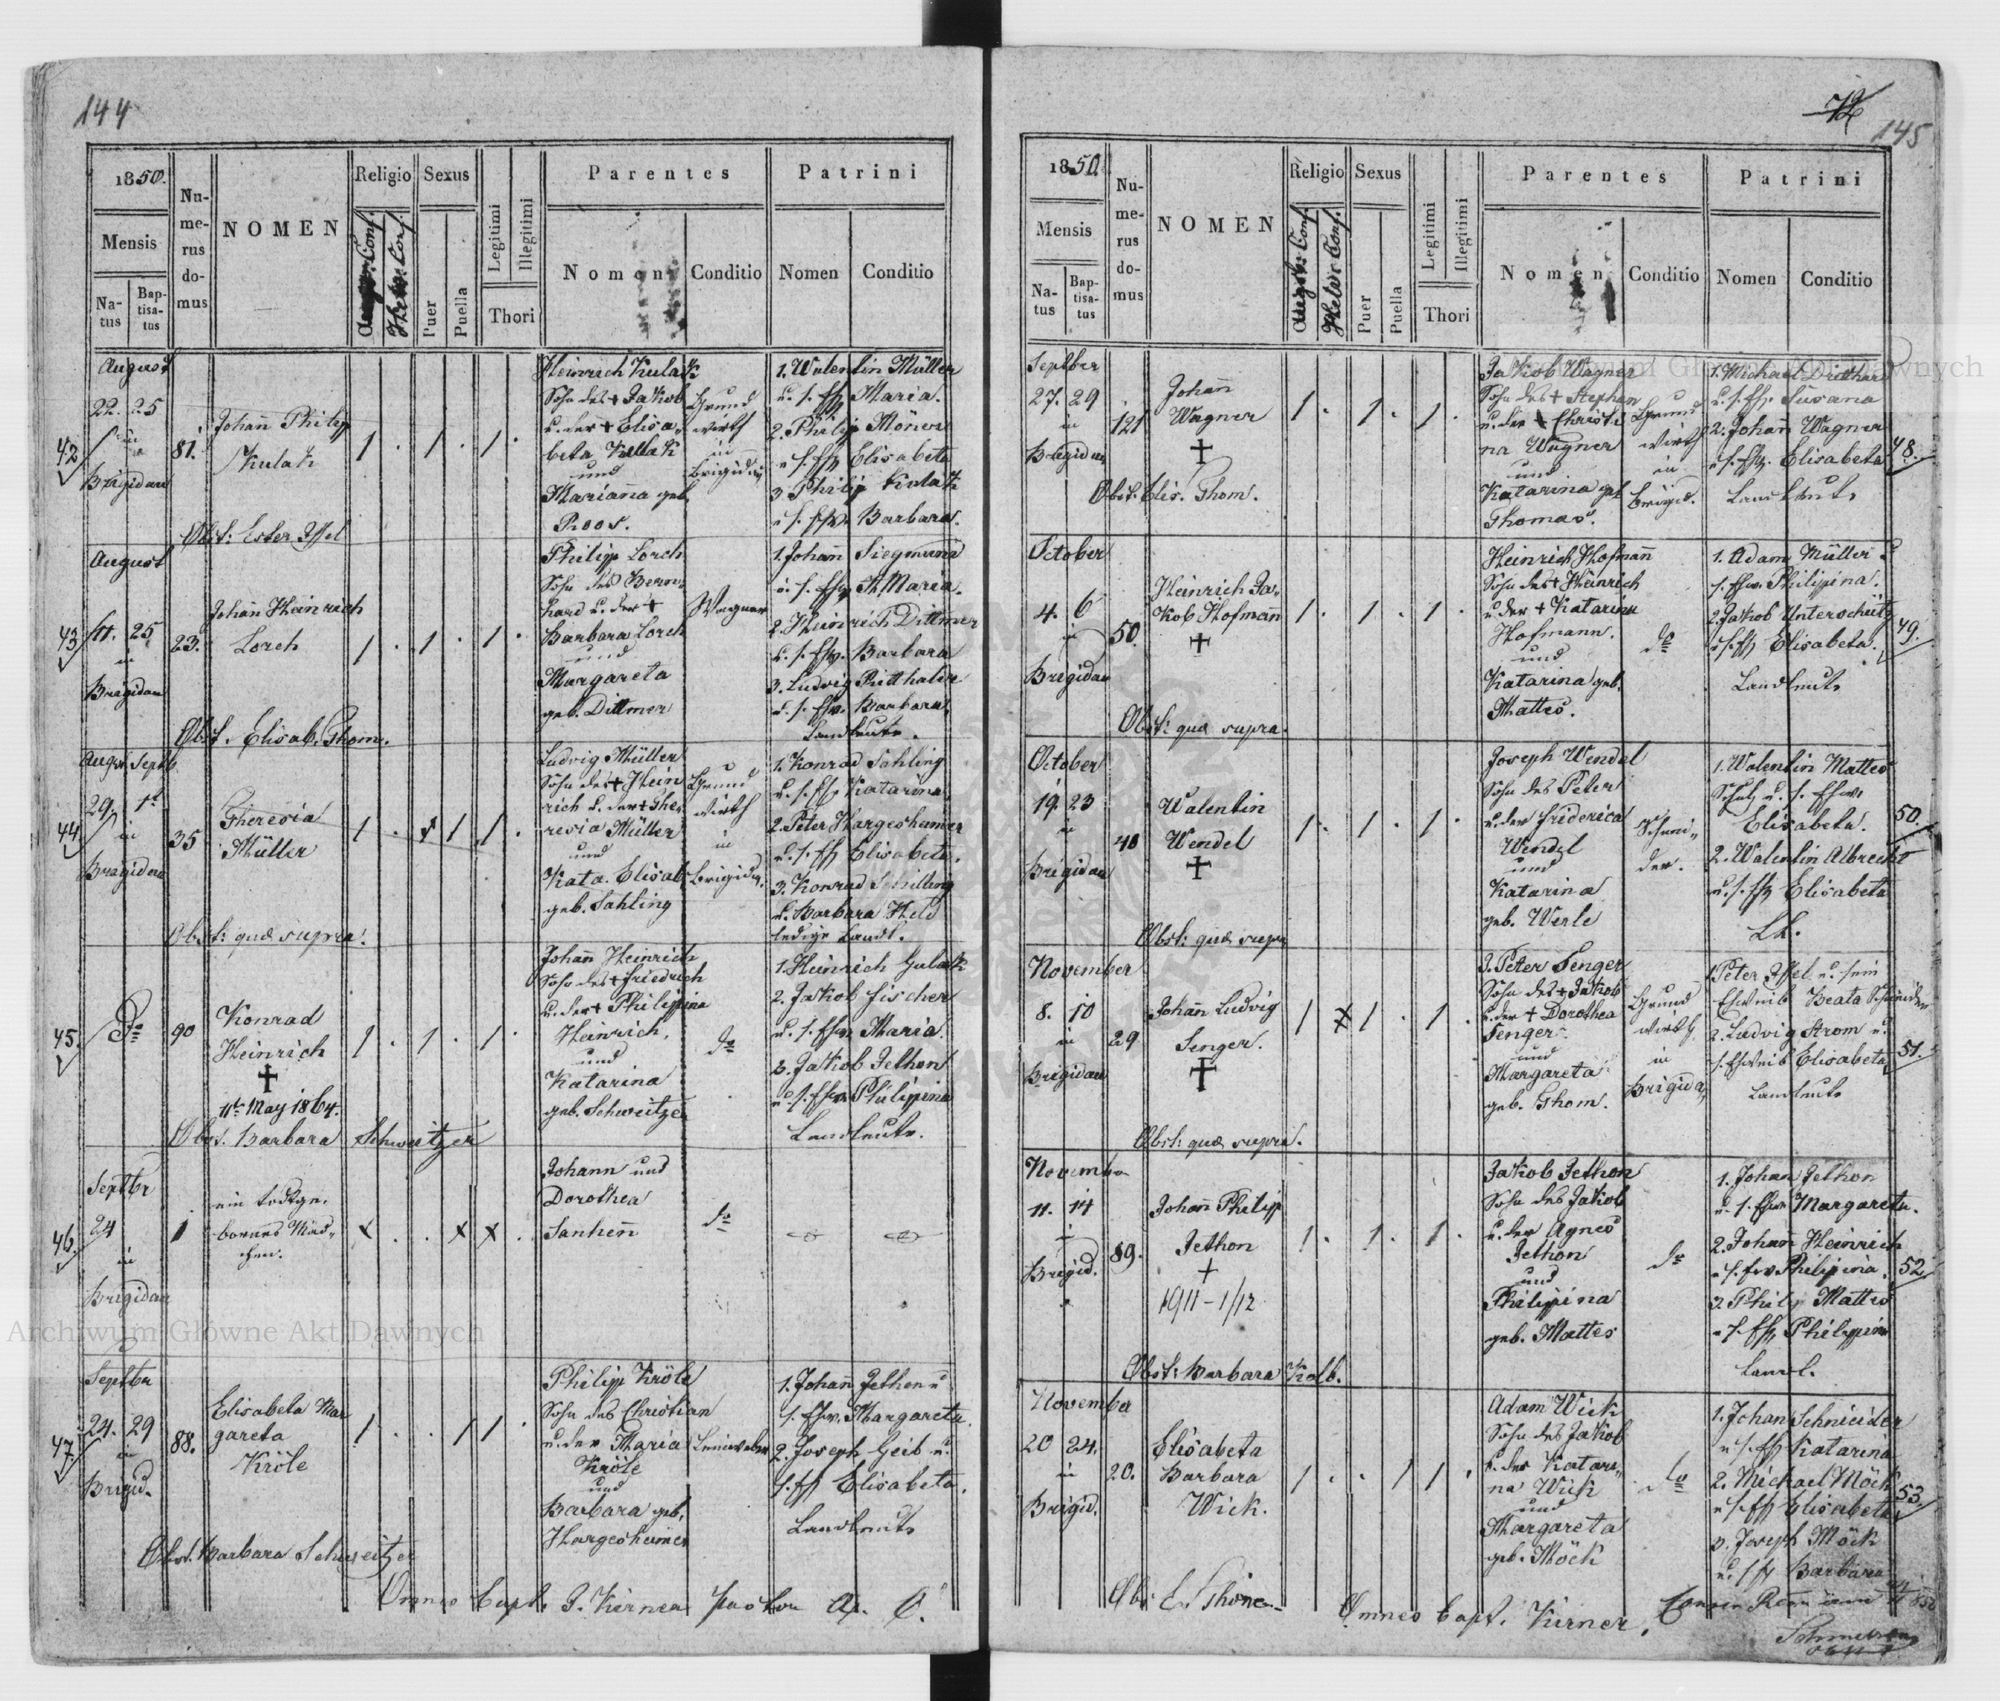 144
1850.
Mensis
Natus
Baptisatus
Numerus domus
NOMEN
Religio
Augsb. Conf.
Helv. Conf.
Sexus
Puer
Puella
Legitimi
Illegitimi
Thori
Parentes
Nomen
Conditio
Patrini
Nomen
Conditio
42
August
22. 25
in
Brigidau
81.
Johann Philip
Kulak
1 . 1 . 1 .
Heinrich Kulak
Sohn des + Jakob
u. der + Elisa-
beta Kullak
und
Marianna geb.
Roos.
Grund
wirth
in
Brigidau
1. Walentin Müller
u. s. Ehw Maria.
2. Philip
u. s. Ehw Elisabeta
3. Philip Kulak
u. s. Ehw. Barbara.
Obst: Ester Issel
43
August
25
in
Brigidau
23.
Johann Heinrich
Lorch
1 . 1 . 1 .
Philipp Lorch
Sohn des Bern-
hard u. der +
Barbara Lorch
und
Margareta
geb. Dittmer
Wagner
1. Johann Siegmund
u. s. Ehw A. Maria.
2. Heinrich Dittmer
u. s. Ehw. Barbara
3. Ludwig Ritthaler
u. s. Ehw. Barbara,
Landleute.
Obst. Elisab. Thom.
44
August Septb
29. 1t
in
Brigidau
35
Theresia
Müller
1 . 1 1 .
Ludwig Müller
Sohn des + Hein
rich u. der + The-
resia Müller
und
Kata. Elisab.
geb. Sahling
Grund
wirth
in
Brigidau.
1. Konrad Sahling
u. s. Ehw Katarina.
2. Peter Hargesheimer
u. s. Ehw Elisabeta.
3. Konrad Schilling
u. Barbara Held
ledige Landl.
Obst: quae supra!
45.
do
90
Konrad
Heinrich
+
11t May 1864.
1 . 1 . 1 .
Johann Heinrich
Sohn des + Friedrich
u. der + Philippina
Heinrich.
und
Katarina
geb. Schweitzer
do
1. Heinrich Gulak
2. Jakob Fischer
u. s. Ehw Maria.
3. Jakob Jethon
u. s. Ehw Philippina
Landleute.
Obst. Barbara Schweitzer
46.
Septbr
24
in
Brigidau
1
ein todtge-
bornes Mäd-
chen.
x . . x x .
Johann und
Dorothea
Sanhenn
do
47.
Septbr
24. 29
in
Brigid.
88.
Elisabeta Mar
gareta
Kröle
1 . . 1 1 .
Philipp Kröle
Sohn des Christian
u. der Maria
Kröle
und
Barbara geb.
Hargesheimer
Leinweber
1. Johann Jethon u
s. Ehw. Margareta.
2. Joseph Geib u.
s. Ehw Elisabeta.
Landleute
Obst. Barbara Schweitzer
Omnes bapt. J. Kirner pastor A. C.
72
145
1850.
Mensis
Natus
Baptisatus
Numerus domus
NOMEN
Religio
Augsb. Conf
Helv. Conf.
Sexus
Puer
Puella
Legitimi
Illegitimi
Thori
Parentes
Nomen
Conditio
Patrini
Nomen
Conditio
Septber
27. 29
in
Brigidau
121
Johann
Wagner
+
1 . 1 . 1 .
Jakob Wagner
Sohn des + Stephan
u. der + Christi
na Wagner
und
Katarina geb
Thomas.
Grund
wirth
in
Brigid.
1. Michael Ditthard
u. s. Ehw Susana
2. Johann Wagner
u. s. Ehw. Elisabeta
Landleute
48.
Obst. Elis. Thom.
October
4. 6
in
Brigidau
50.
Heinrich Ja-
kob Hofmann
+
1 . 1 . 1 .
Heinrich Hofmann
Sohn des + Heinrich
u. der + Katarina
Hofmann.
und
Katarina geb.
Mattes.
do
1. Adam Müller u
s. Ehw. Philippina.
2. Jakob Unterschütz
u. s. Ehw Elisabeta.
Landleute
49.
Obst: quae supra.
October
19. 23
in
Brigidau
48
Walentin
Wendel
+
1 . 1 . 1 .
Joseph Wendel
Sohn des Peter
u. der Friderica
Wendel
und
Katarina
geb. Werle
Schnei-
der.
1. Walentin Mattes
Schulz u. s. Ehw
Elisabeta.
2. Walentin Albrecht
u. s. Ehw Elisabeta
LL.
50.
Obst: quae supra
November
8. 10
in
Brigidau
29
Johann Ludwig
Senger.
+
1 x 1 . 1 .
J. Peter Senger
Sohn des + Jakob
u. der + Dorothea
Senger.
und
Margareta
geb. Thom.
Grund
wirth
in
Brigida
1. Peter Issel u. sein
Ehweib Beata Schneider
2. Ludwig Strom u.
s. Ehweib Elisabeta
Landleute
51.
Obst: quae supra.
November
11. 14
in
Brigid.
89.
Johann Philipp
Jethon
+
1911 - 1/12
1 . 1 . 1 .
Jakob Jethon
Sohn des Jakob
u. der Agnes
Jethon
und
Philippina
geb. Mattes
do
1. Johan Jethon
u. s. Ehw Margareta.
2. Johan Heinrich
u. s. Ehw Philipina.
3. Philip Mattes
u. s. Ehw Philippina
Landl.
52
Obst: Barbara Kolb.
November
20 24.
in
Brigid.
20.
Elisabeta
Barbara
Wick.
1 . . 1 1 .
Adam Wick
Sohn des Jakob
u. der Katari-
na Wick
und
Margareta
geb. Möck
do
1. Johan Schneider
u. s. Ehw Katarina
2. Michael Möck
u. s. Ehw Elisabeta
3. Joseph Möck
u. s. Ehw Barbara
53.
Obs: E. Thom
Omnes bapt. Kirner.
Archiwum Główne Akt Dawnych
Archiwum Główne Akt Dawnych